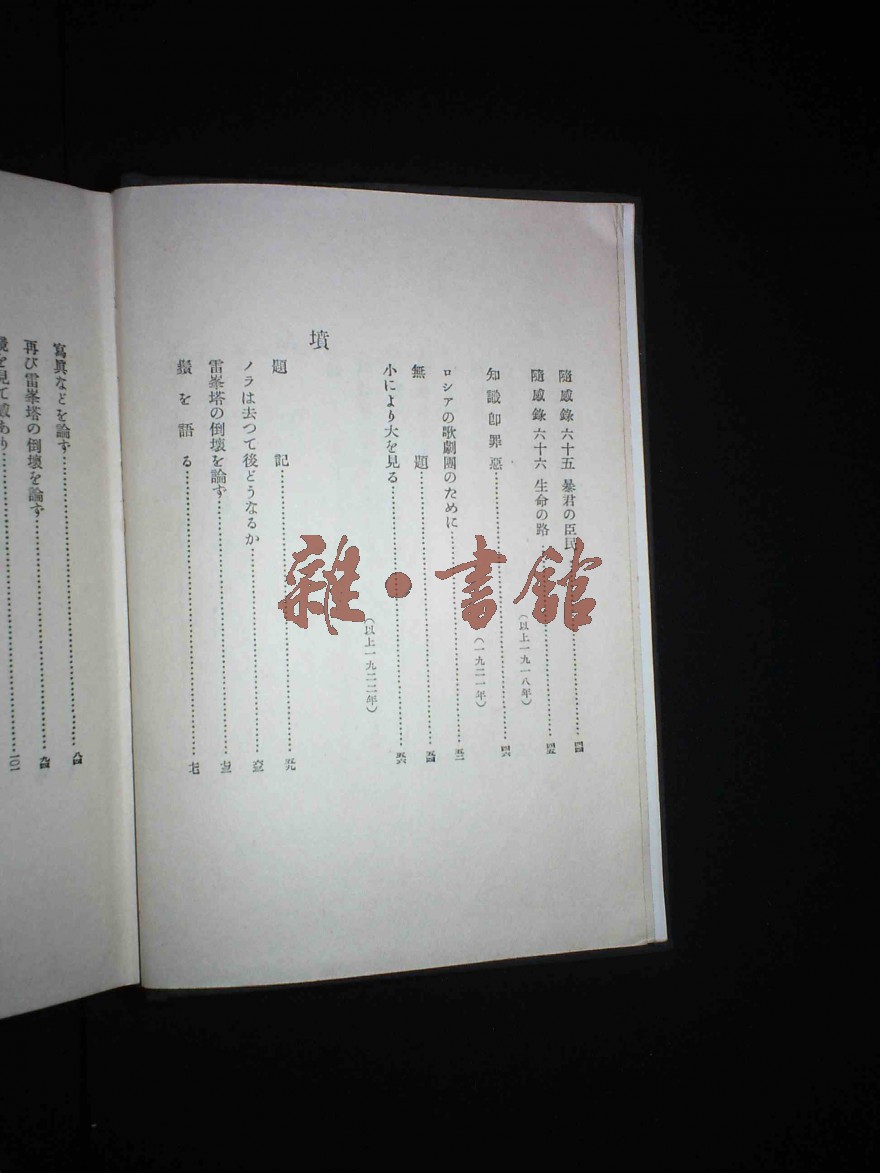 隨感錄 六十五 暴君の臣民……四四
隨感錄 六十六 生命の路……四五
(以上一九一八年)
知識卽罪惡……四六
(一九二一年)
ロシアの歌劇團のために……五二
無題……五四
小により大を見る……五六
(以上一九二二年)
墳
題記……五九
ノラは去つて後どうなるか……六二
雷峯塔の倒壞を論ず……七三
鬚を語る……七七
寫眞などを論ず……八四
再び雷峯塔の倒壞を論ず……九四
を見て感あり……一〇一
雜·書館